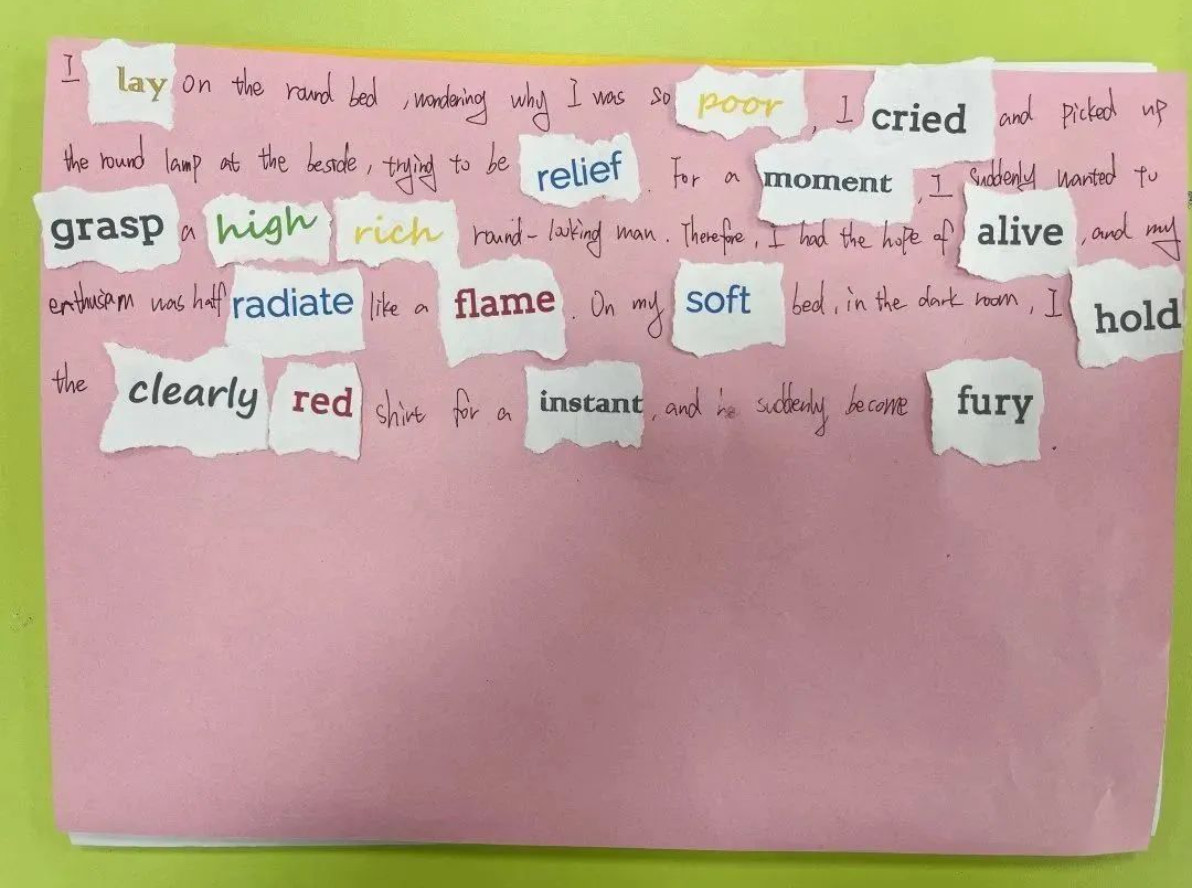 I lay on the round bed , wondering why I was so poor , I cried and picked up
the round lamp at the beside , trying to be relief . For a moment , I Suddenly wanted to
grasp a high rich round-looking man . Therefore , I had the hope of alive , and my
enthusiam was half radiate like a flame . On my soft bed , in the dark room , I hold
the clearly red shirt for a instant , and he suddenly become fury .